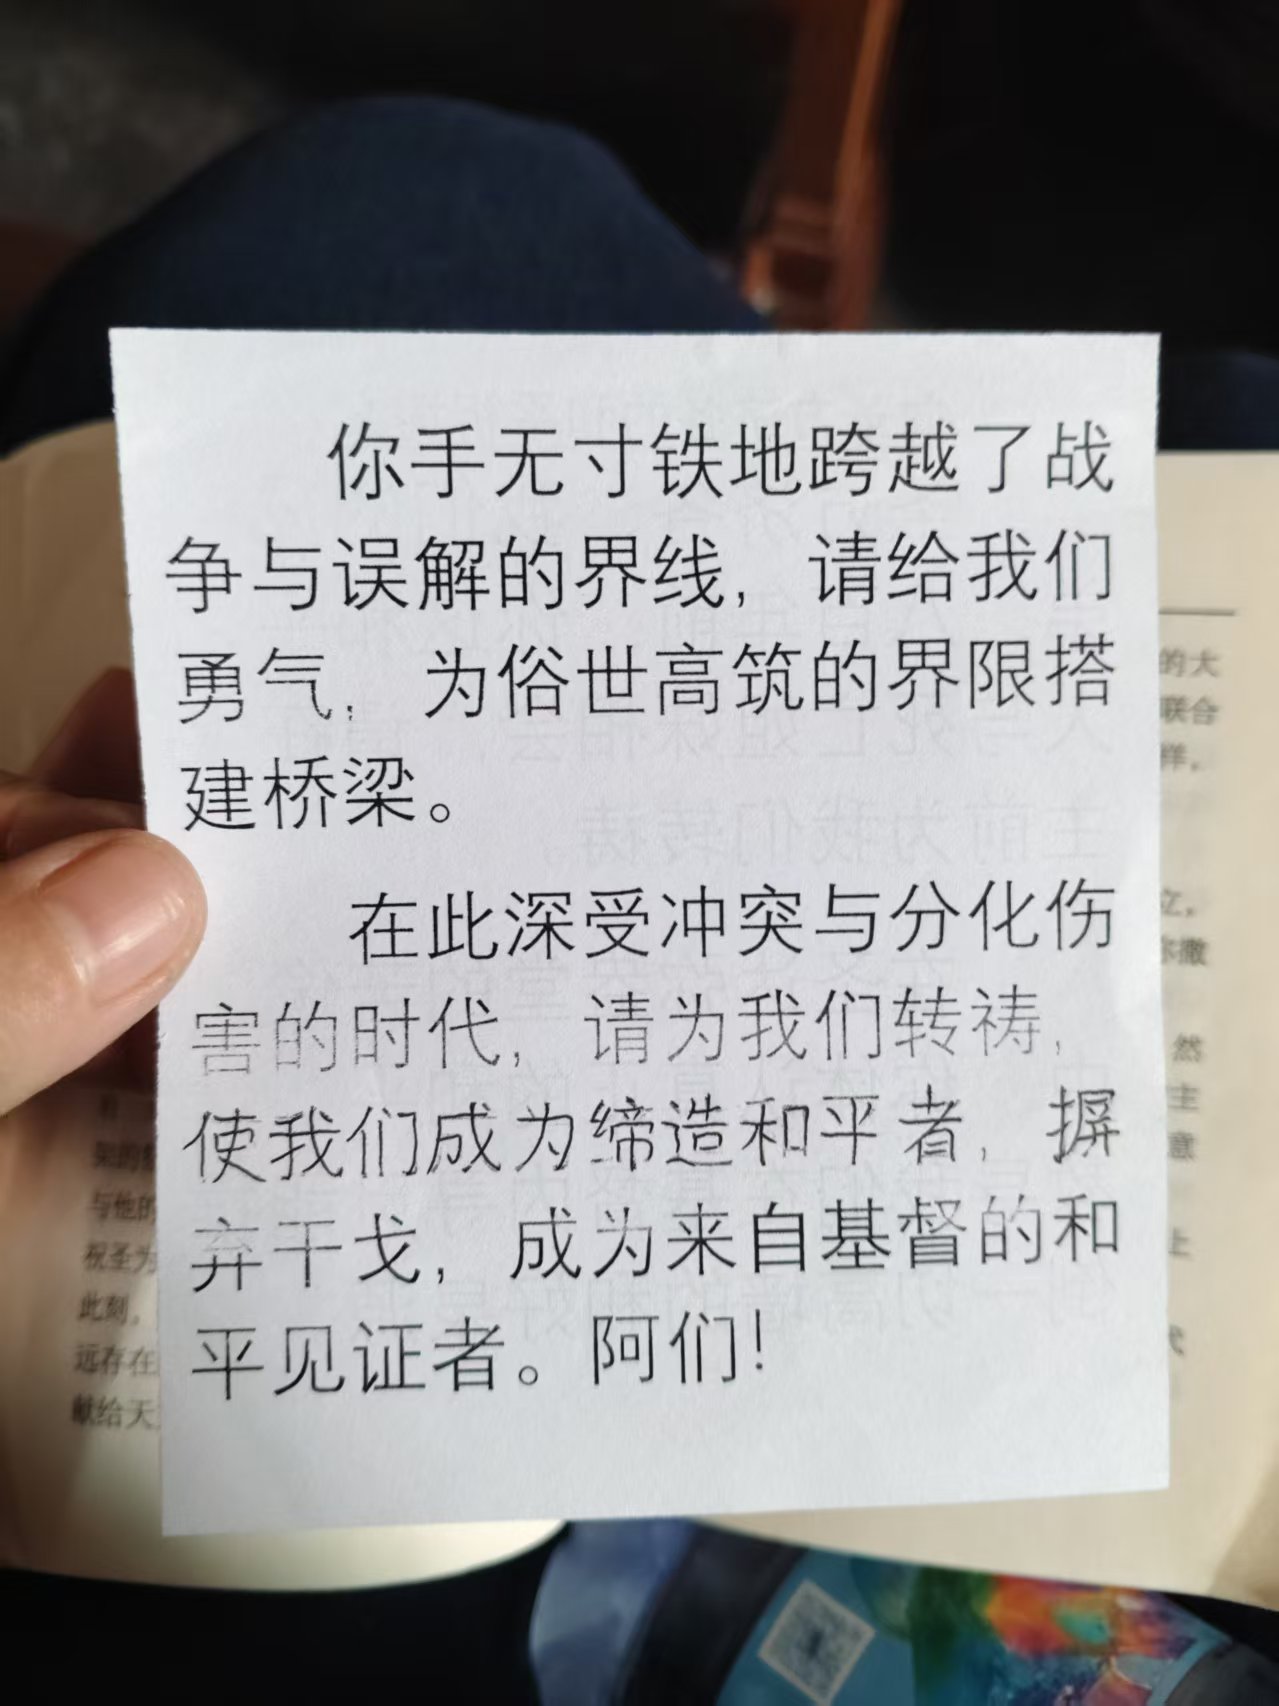 你手无寸铁地跨越了战
争与误解的界线，请给我们
勇气，为俗世高筑的界限搭
建桥梁。
在此深受冲突与分化伤
害的时代，请为我们转祷，
使我们成为缔造和平者，摒
弃干戈，成为来自基督的和
平见证者。阿们！
的大
联合
样，
立，
你撒
然
主
意
上
代
架的
与他的
祝圣为
此刻，
远存在
献给天